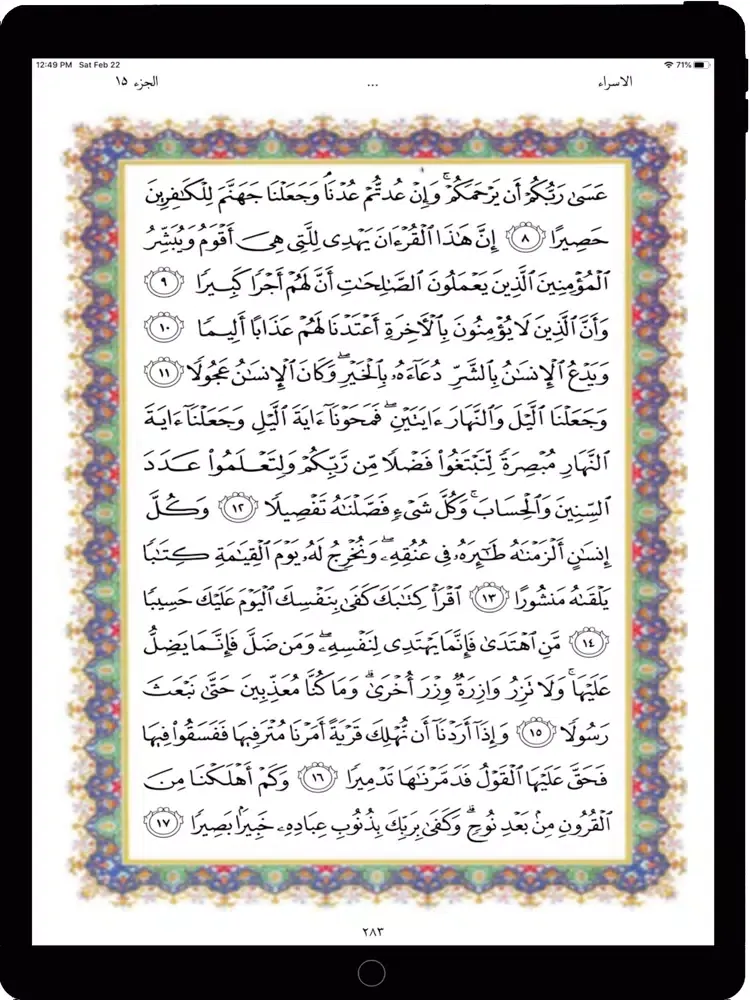 12:49 PM Sat Feb 22 71%
الاسراء ... الجزء ١٥
عَسَىٰ رَبُّكُمْ أَن يَرْحَمَكُمْ ۚ وَإِنْ عُدتُّمْ عُدْنَا ۘ وَجَعَلْنَا جَهَنَّمَ لِلْكَـٰفِرِينَ
حَصِيرًا ٨ إِنَّ هَـٰذَا ٱلْقُرْءَانَ يَهْدِى لِلَّتِى هِىَ أَقْوَمُ وَيُبَشِّرُ
ٱلْمُؤْمِنِينَ ٱلَّذِينَ يَعْمَلُونَ ٱلصَّـٰلِحَـٰتِ أَنَّ لَهُمْ أَجْرًا كَبِيرًا ٩
وَأَنَّ ٱلَّذِينَ لَا يُؤْمِنُونَ بِٱلْـَٔاخِرَةِ أَعْتَدْنَا لَهُمْ عَذَابًا أَلِيمًا ١٠
وَيَدْعُ ٱلْإِنسَـٰنُ بِٱلشَّرِّ دُعَآءَهُۥ بِٱلْخَيْرِ ۖ وَكَانَ ٱلْإِنسَـٰنُ عَجُولًا ١١
وَجَعَلْنَا ٱلَّيْلَ وَٱلنَّهَارَ ءَايَتَيْنِ ۖ فَمَحَوْنَآ ءَايَةَ ٱلَّيْلِ وَجَعَلْنَآ ءَايَةَ
ٱلنَّهَارِ مُبْصِرَةً لِّتَبْتَغُوا۟ فَضْلًا مِّن رَّبِّكُمْ وَلِتَعْلَمُوا۟ عَدَدَ
ٱلسِّنِينَ وَٱلْحِسَابَ ۚ وَكُلَّ شَىْءٍ فَصَّلْنَـٰهُ تَفْصِيلًا ١٢ وَكُلَّ
إِنسَـٰنٍ أَلْزَمْنَـٰهُ طَـٰٓئِرَهُۥ فِى عُنُقِهِۦ ۖ وَنُخْرِجُ لَهُۥ يَوْمَ ٱلْقِيَـٰمَةِ كِتَـٰبًا
يَلْقَىٰهُ مَنشُورًا ١٣ ٱقْرَأْ كِتَـٰبَكَ كَفَىٰ بِنَفْسِكَ ٱلْيَوْمَ عَلَيْكَ حَسِيبًا
١٤ مَّنِ ٱهْتَدَىٰ فَإِنَّمَا يَهْتَدِى لِنَفْسِهِۦ ۖ وَمَن ضَلَّ فَإِنَّمَا يَضِلُّ
عَلَيْهَا ۚ وَلَا تَزِرُ وَازِرَةٌ وِزْرَ أُخْرَىٰ ۗ وَمَا كُنَّا مُعَذِّبِينَ حَتَّىٰ نَبْعَثَ
رَسُولًا ١٥ وَإِذَآ أَرَدْنَآ أَن نُّهْلِكَ قَرْيَةً أَمَرْنَا مُتْرَفِيهَا فَفَسَقُوا۟ فِيهَا
فَحَقَّ عَلَيْهَا ٱلْقَوْلُ فَدَمَّرْنَـٰهَا تَدْمِيرًا ١٦ وَكَمْ أَهْلَكْنَا مِنَ
ٱلْقُرُونِ مِنۢ بَعْدِ نُوحٍ ۗ وَكَفَىٰ بِرَبِّكَ بِذُنُوبِ عِبَادِهِۦ خَبِيرًۢا بَصِيرًا ١٧
٢٨٣